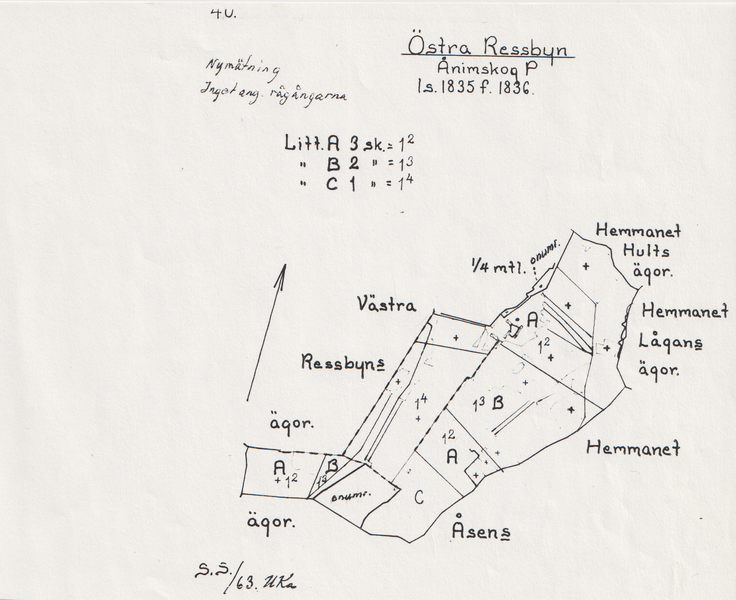 4U.
Östra Ressbyn
Ånimskog P
ls. 1835 f. 1836.
Nymätning
Inget ang. rågångarna
Litt. A 3 sk. = 1²
" B 2 " = 1³
" C 1 " = 1⁴
Hemmanet
Hults
ägor.
onumr.
1/4 mtl.
Västra
Hemmanet
Lågans
ägor.
A
1²
Ressbyns
1⁴
1³ B
ägor.
1²
A
Hemmanet
A
1²
B
1³
onumr.
C
ägor.
Åsens
S.S./63. UKa